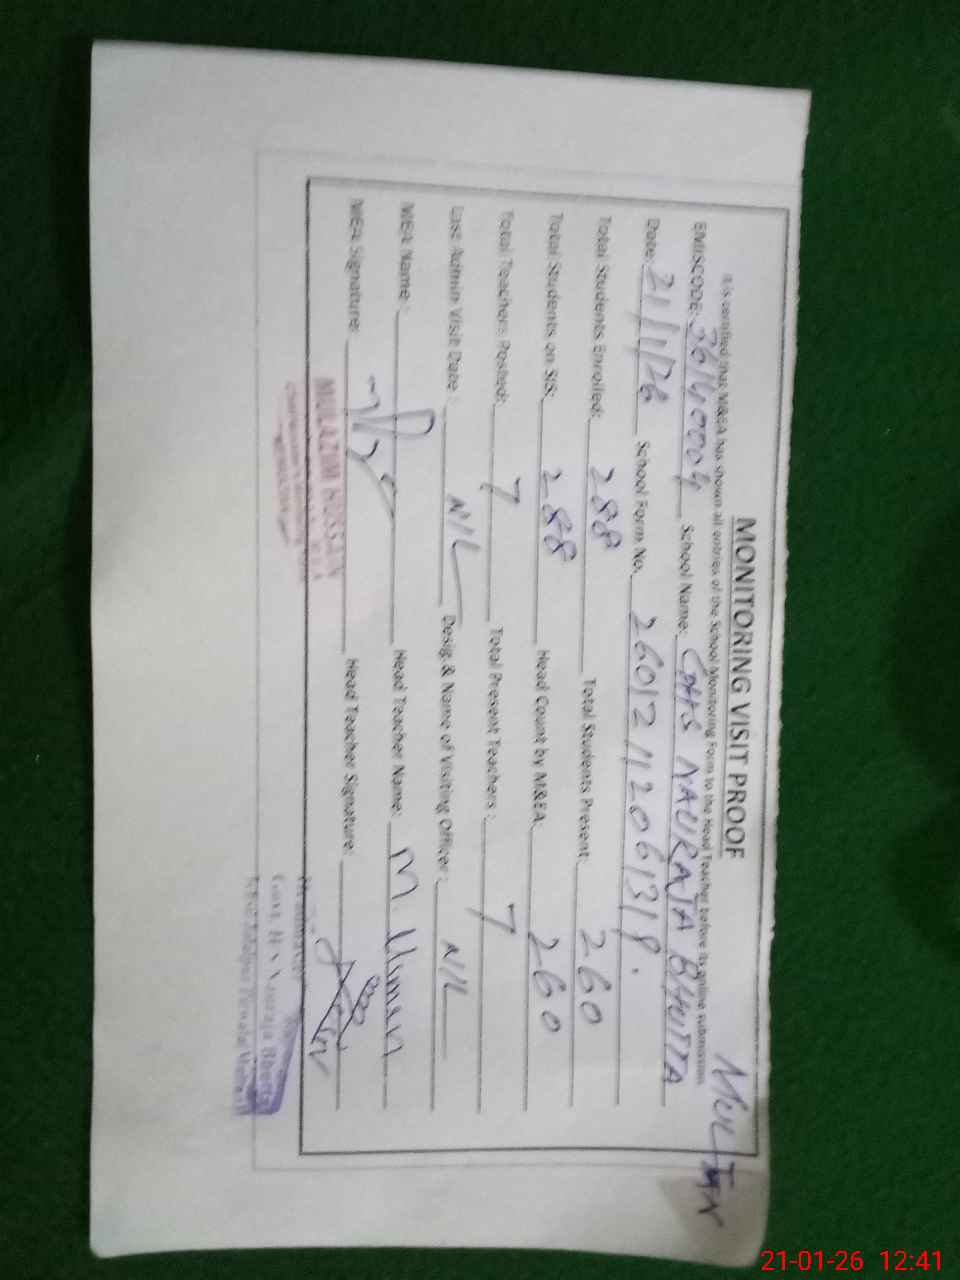 MULTAN
MONITORING VISIT PROOF
It is certified that M&EA has shown all entries of the School Monitoring Form to the Head Teacher before its online submission.
EMISCODE: 36140004 School Name: GHS NAURAJA BHUTTA
Date: 21/1/26 School Form No. 26012112061318.
Total Students Enrolled: 288 Total Students Present: 260
Total Students on SIS: 288 Head Count by M&EA: 260
Total Teachers Posted: 7 Total Present Teachers: 7
Last Admin Visit Date: NIL Desig & Name of Visiting Officer: NIL
MEA Name: Head Teacher Name: M. Usman
MEA Signature: Head Teacher Signature:
MULAZIM HUSSAIN
Govt. H.S Nauraja Bhutta
21-01-26 12:41